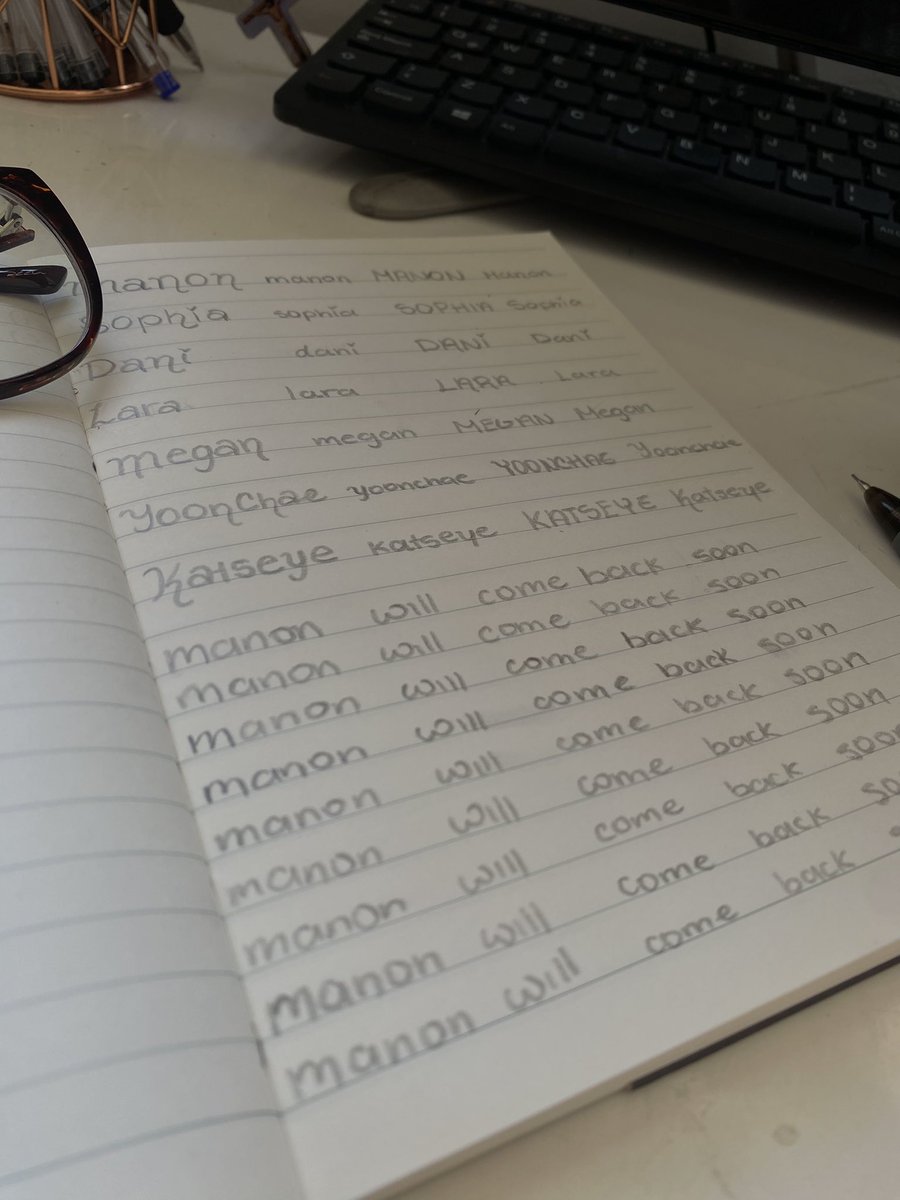 manon manon MANON Manon
Sophia sophia SOPHIA Sophia
Dani dani DANI Dani
Lara lara LARA Lara
megan megan MEGAN Megan
YoonChae yoonchae YOONCHAE Yoonchae
Katseye Katseye KATSEYE Katseye
manon will come back soon
manon will come back soon
manon will come back soon
manon will come back soon
manon will come back soon
manon will come back soon
manon will come back soon
manon will come back so
manon will come back